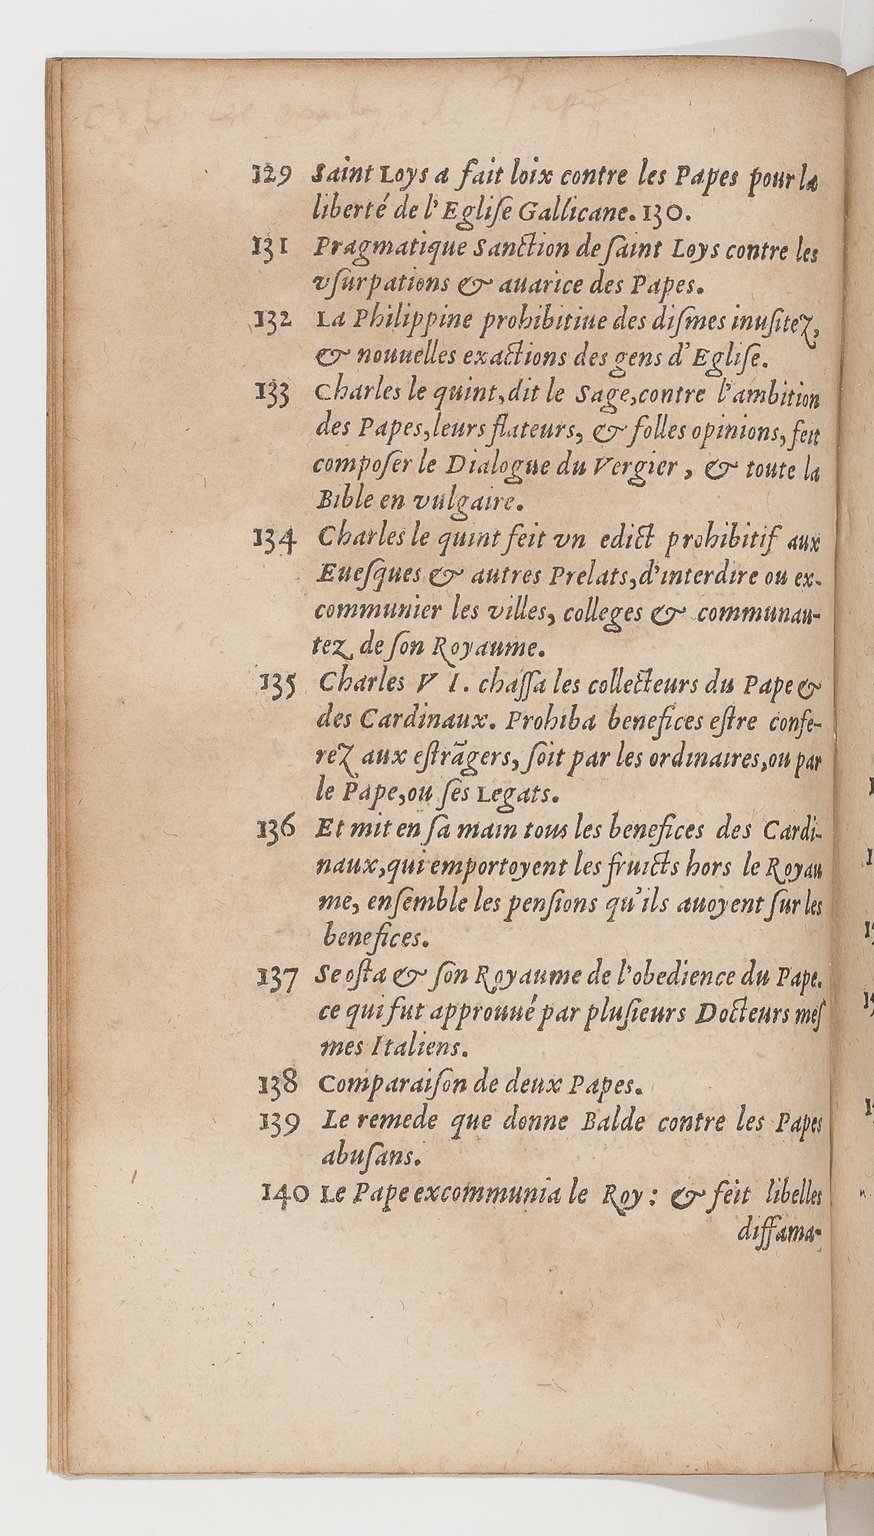 129 Saint Loys a fait loix contre les Papes pour la
liberté de l'Egliſe Gallicane. 130.
131 Pragmatique Sanction de ſaint Loys contre les
vſurpations & auarice des Papes.
132 La Philippine prohibitiue des diſmes inuſitez,
& nouuelles exactions des gens d'Egliſe.
133 Charles le quint, dit le Sage, contre l'ambition
des Papes, leurs flateurs, & folles opinions, feit
compoſer le Dialogue du Vergier, & toute la
Bible en vulgaire.
134 Charles le quint feit vn edict prohibitif aux
Eueſques & autres Prelats, d'interdire ou ex-
communier les villes, colleges & communau-
tez de ſon Royaume.
135 Charles V I. chaſſa les collecteurs du Pape &
des Cardinaux. Prohiba benefices eſtre confe-
rez aux eſträgers, ſoit par les ordinaires, ou par
le Pape, ou ſes Legats.
136 Et mit en ſa main tous les benefices des Cardi-
naux, qui emportoyent les fruicts hors le Royau
me, enſemble les penſions qu'ils auoyent ſur les
benefices.
137 Se oſta & ſon Royaume de l'obedience du Pape.
ce qui fut approuué par pluſieurs Docteurs meſ
mes Italiens.
138 Comparaiſon de deux Papes.
139 Le remede que donne Balde contre les Papes
abuſans.
140 Le Pape excommunia le Roy: & feit libelles
diffama-